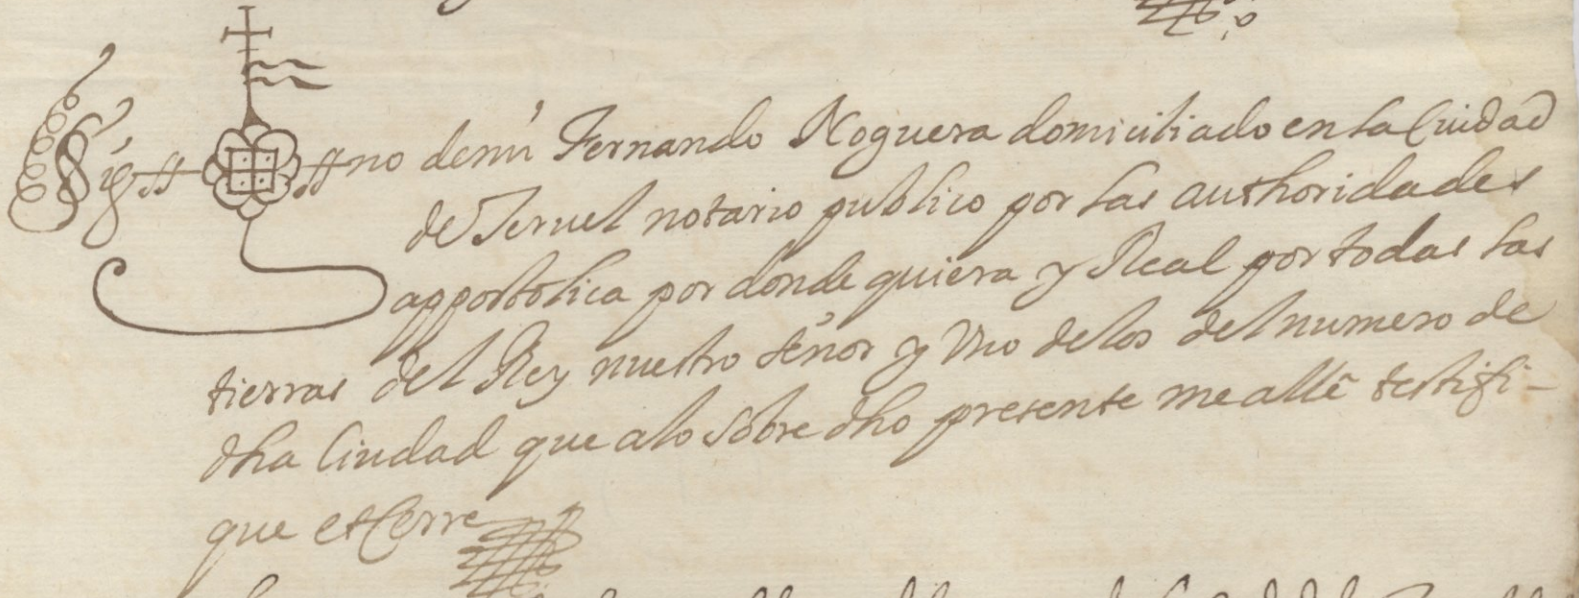 Sig no de mi Fernando Noguera domiciliado en la Ciudad
de Teruel notario publico por las authoridades
appostolica por donde quiera y Real por todas las
tierras del Rey nuestro señor y Uno de los del numero de
dha Ciudad que alo sobre dho presente me allé testifi-
que et Cerre